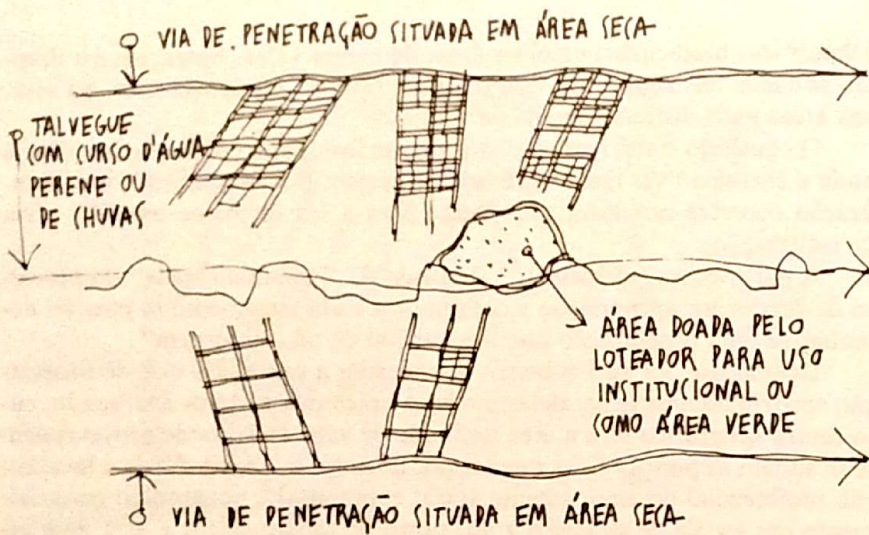 VIA DE PENETRAÇÃO SITUADA EM ÁREA SECA
TALVEGUE
COM CURSO D'ÁGUA
PERENE OU
DE CHUVAS
ÁREA DOADA PELO
LOTEADOR PARA USO
INSTITUCIONAL OU
COMO ÁREA VERDE
VIA DE PENETRAÇÃO SITUADA EM ÁREA SECA